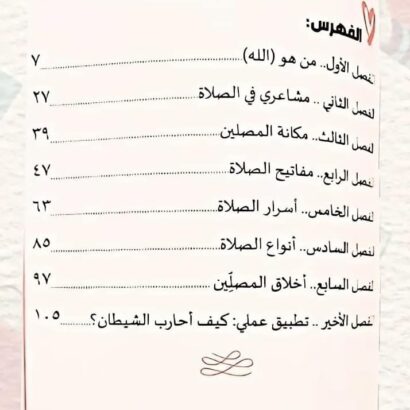 الفهرس:
الفصل الأول.. من هو (الله) ........ ٧
الفصل الثاني .. مشاعري في الصلاة ........ ٢٧
الفصل الثالث.. مكانة المصلين ........ ٣٩
الفصل الرابع.. مفاتيح الصلاة ........ ٤٧
الفصل الخامس.. أسرار الصلاة ........ ٦٣
الفصل السادس.. أنواع الصلاة ........ ٨٥
الفصل السابع.. أخلاق المصلِّين ........ ٩٧
الفصل الأخير .. تطبيق عملي: كيف أحارب الشيطان؟ ........ ١٠٥